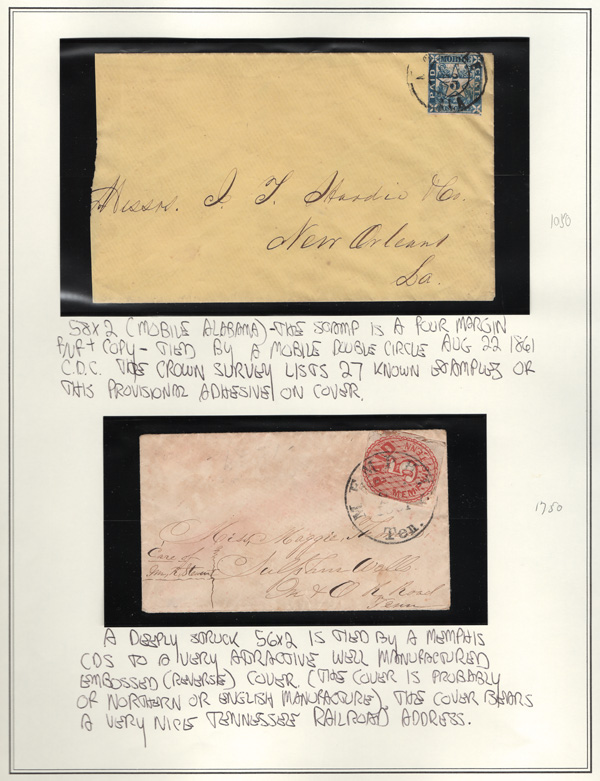 MOBILE
PAID
5
Messrs. J. T. Hardie & Co.
New Orleans
La.
1080
58X2 (MOBILE ALABAMA) - THE STAMP IS A FOUR MARGIN
F/VF+ COPY - TIED BY A MOBILE DOUBLE CIRCLE AUG 22 1861
C.D.C. THE CROWN SURVEY LISTS 27 KNOWN EXAMPLES OR
THIS PROVISIONAL ADHESIVE ON COVER.
PAID
5
MEMPHIS
TENN
Ten.
Miss Maggie
Care of
Sulphur Well
M & O R. Road
Tenn
1750
A DEEPLY STRUCK 56X2 IS TIED BY A MEMPHIS
CDS TO A VERY ATTRACTIVE WELL MANUFACTURED
EMBOSSED (REVERSE) COVER (THE COVER IS PROBABLY
OF NORTHERN OR ENGLISH MANUFACTURE). THE COVER BEARS
A VERY NICE TENNESSEE RAILROAD ADDRESS.